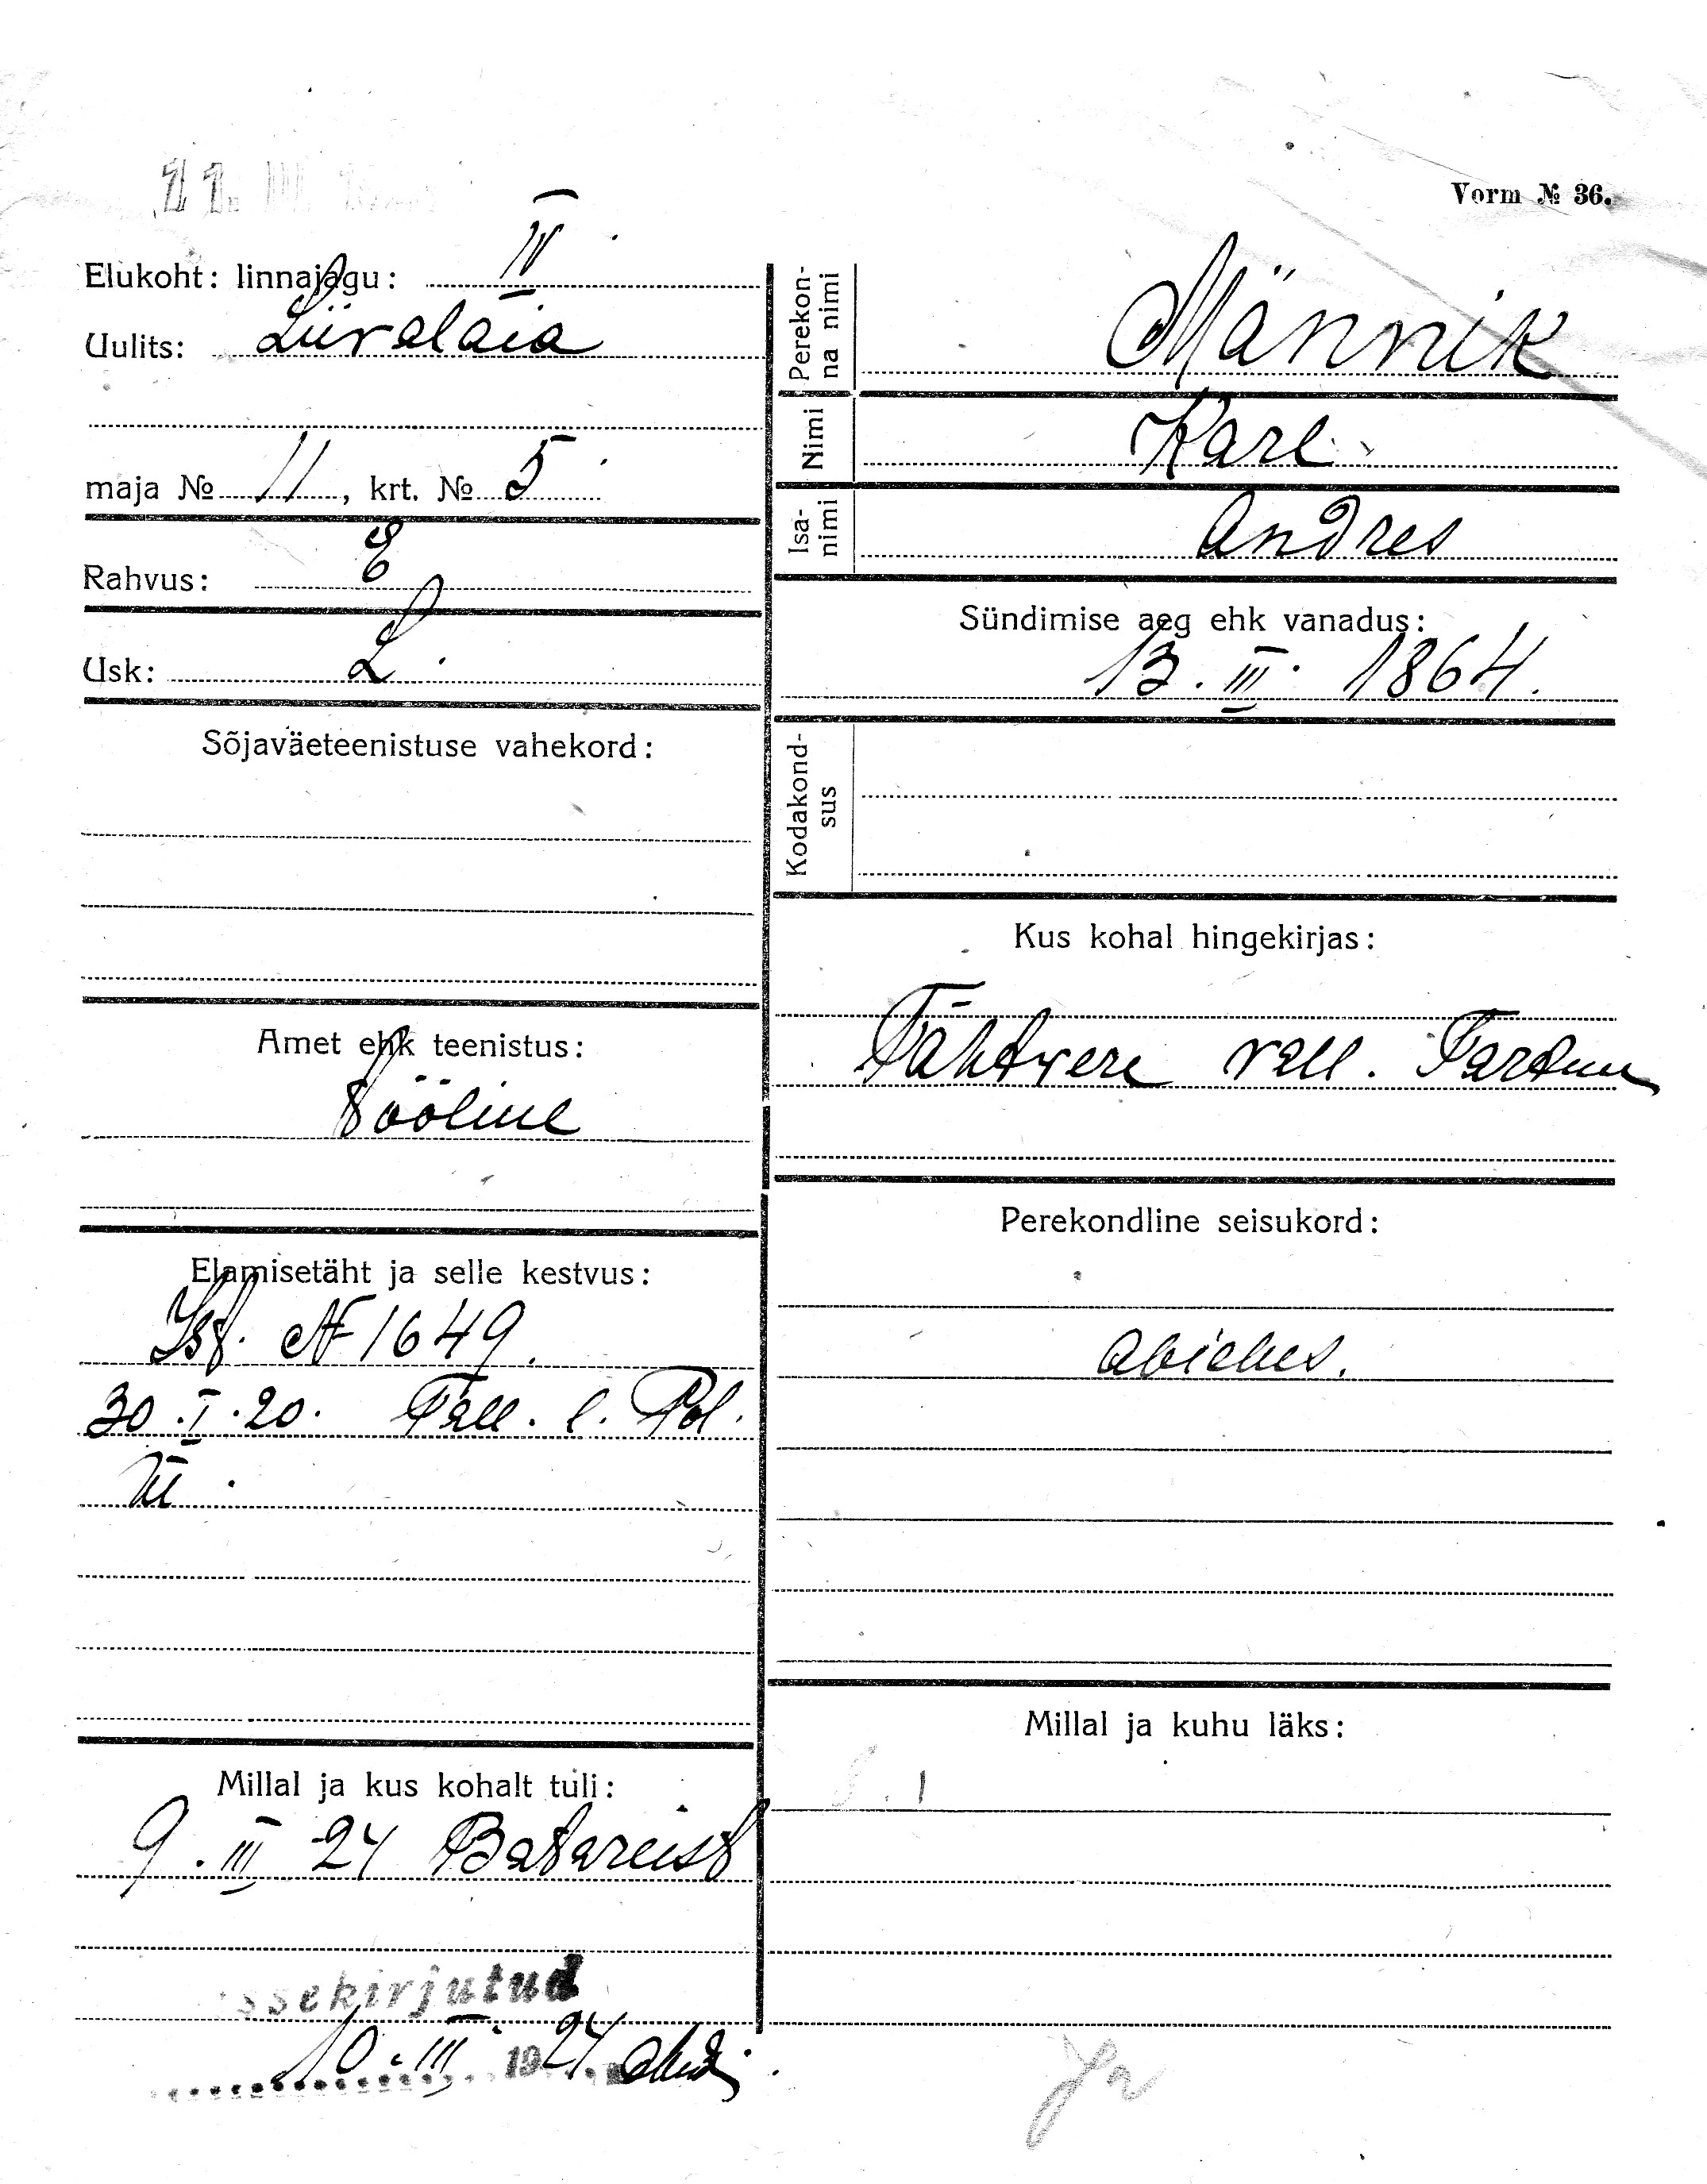 Vorm № 36.
Elukoht: linnajagu: IV
Uulits: Liivalaia
maja № 11, krt. № 5
Rahvus: E
Usk: L.
Sõjaväeteenistuse vahekord:
Amet ehk teenistus:
Tööline
Elamisetäht ja selle kestvus:
Ist. № 1649.
30.I.20. Tall. l. Pol.
Millal ja kus kohalt tuli:
9. III 24 Batareist
ssekirjutud
10. III 1924
Perekon-
na nimi
Männik
Nimi
Karl
Isa-
nimi
Andres
Sündimise aeg ehk vanadus:
13. III. 1864.
Kodakond-
sus
Kus kohal hingekirjas:
Tähtvere vall. Tartuu
Perekondline seisukord:
abielus.
Millal ja kuhu läks: